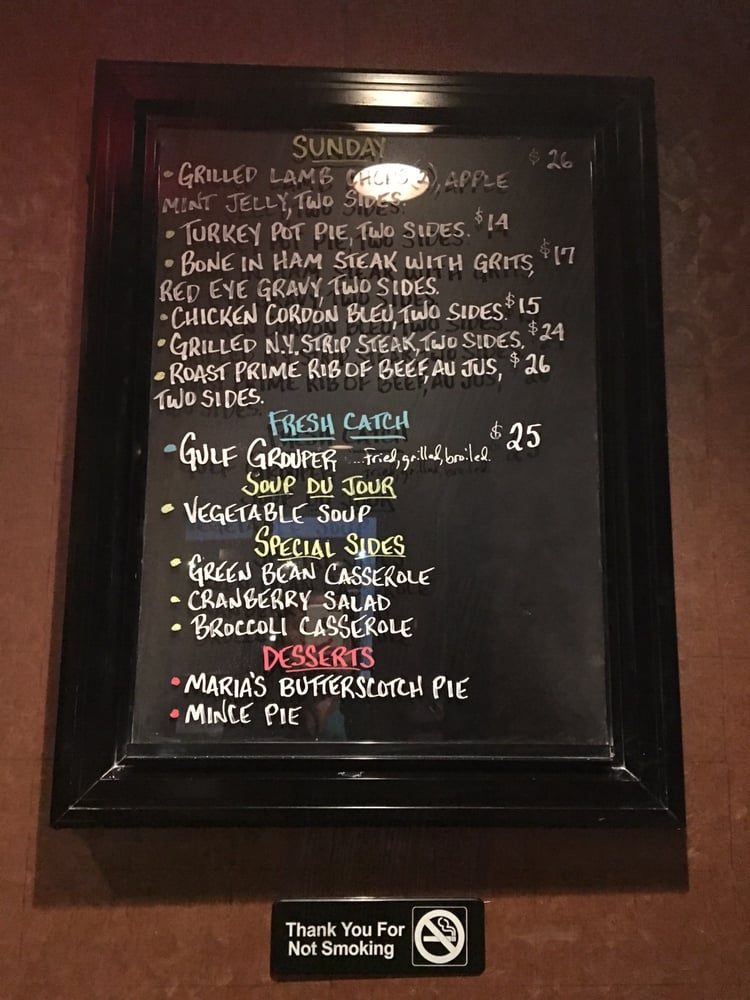 SUNDAY
• GRILLED LAMB CHOPS(2), APPLE $26
MINT JELLY, TWO SIDES.
• TURKEY POT PIE, TWO SIDES. $14
• BONE IN HAM STEAK WITH GRITS, $17
RED EYE GRAVY, TWO SIDES.
• CHICKEN CORDON BLEU, TWO SIDES. $15
• GRILLED N.Y. STRIP STEAK, TWO SIDES. $24
• ROAST PRIME RIB OF BEEF, AU JUS, $26
TWO SIDES.
FRESH CATCH
• GULF GROUPER ...Fried, grilled, broiled. $25
SOUP DU JOUR
• VEGETABLE SOUP
SPECIAL SIDES
• GREEN BEAN CASSEROLE
• CRANBERRY SALAD
• BROCCOLI CASSEROLE
DESSERTS
• MARIA'S BUTTERSCOTCH PIE
• MINCE PIE
Thank You For
Not Smoking